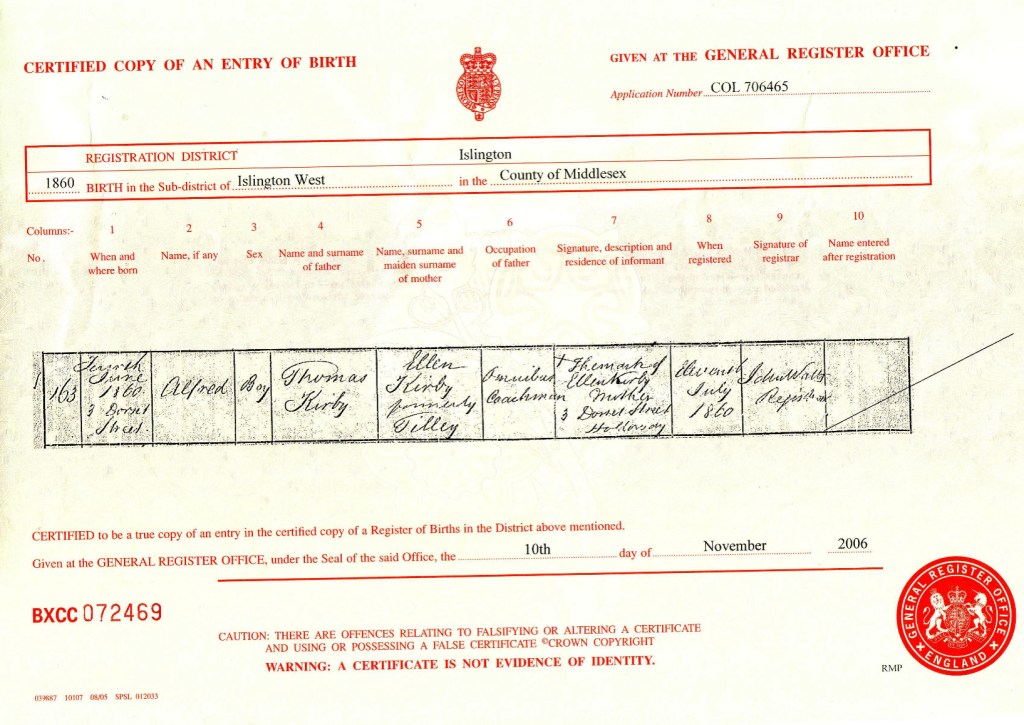 CERTIFIED COPY OF AN ENTRY OF BIRTH
GIVEN AT THE GENERAL REGISTER OFFICE
Application Number COL 706465
REGISTRATION DISTRICT Islington
1860 BIRTH in the Sub-district of Islington West in the County of Middlesex
Columns:- 1 2 3 4 5 6 7 8 9 10
No. When and where born
Name, if any
Sex
Name and surname of father
Name, surname and maiden surname of mother
Occupation of father
Signature, description and residence of informant
When registered
Signature of registrar
Name entered after registration
163
June
1860
3 Dorset
Street
Alfred
Boy
Thomas
Kirby
Ellen
Kirby
formerly
Tilley
Omnibus
Coachman
The mark of
Ellen Kirby
Mother
3 Dorset Street
Holloway
July
1860
John
Registrar
CERTIFIED to be a true copy of an entry in the certified copy of a Register of Births in the District above mentioned.
Given at the GENERAL REGISTER OFFICE, under the Seal of the said Office, the 10th day of November 2006
BXCC 072469
CAUTION: THERE ARE OFFENCES RELATING TO FALSIFYING OR ALTERING A CERTIFICATE
AND USING OR POSSESSING A FALSE CERTIFICATE ©CROWN COPYRIGHT
WARNING: A CERTIFICATE IS NOT EVIDENCE OF IDENTITY.
GENERAL REGISTER OFFICE
ENGLAND
RMP
039887 10107 08/05 SPSL 012033